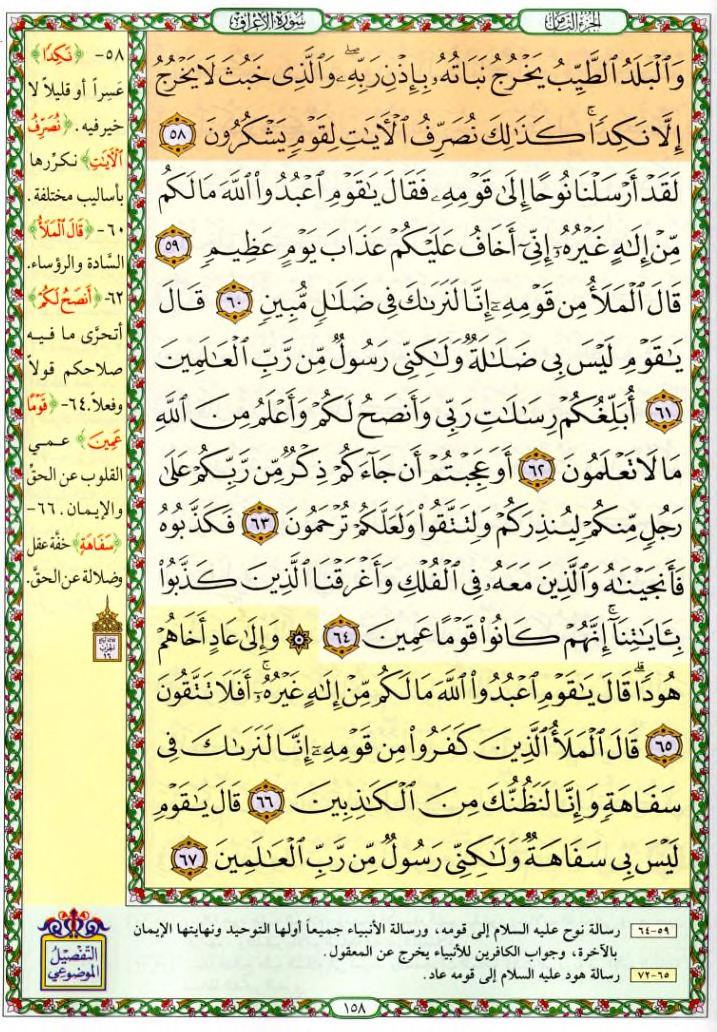 سورة الأعراف
الجزء الثامن
وَٱلْبَلَدُ ٱلطَّيِّبُ يَخْرُجُ نَبَاتُهُۥ بِإِذْنِ رَبِّهِۦ ۖ وَٱلَّذِى خَبُثَ لَا يَخْرُجُ
إِلَّا نَكِدًا ۚ كَذَٰلِكَ نُصَرِّفُ ٱلْـَٔايَٰتِ لِقَوْمٍ يَشْكُرُونَ ٥٨
لَقَدْ أَرْسَلْنَا نُوحًا إِلَىٰ قَوْمِهِۦ فَقَالَ يَٰقَوْمِ ٱعْبُدُوا۟ ٱللَّهَ مَا لَكُم
مِّنْ إِلَٰهٍ غَيْرُهُۥٓ إِنِّىٓ أَخَافُ عَلَيْكُمْ عَذَابَ يَوْمٍ عَظِيمٍ ٥٩
قَالَ ٱلْمَلَأُ مِن قَوْمِهِۦٓ إِنَّا لَنَرَىٰكَ فِى ضَلَٰلٍ مُّبِينٍ ٦٠ قَالَ
يَٰقَوْمِ لَيْسَ بِى ضَلَٰلَةٌ وَلَٰكِنِّى رَسُولٌ مِّن رَّبِّ ٱلْعَٰلَمِينَ
٦١ أُبَلِّغُكُمْ رِسَٰلَٰتِ رَبِّى وَأَنصَحُ لَكُمْ وَأَعْلَمُ مِنَ ٱللَّهِ
مَا لَا تَعْلَمُونَ ٦٢ أَوَعَجِبْتُمْ أَن جَآءَكُمْ ذِكْرٌ مِّن رَّبِّكُمْ عَلَىٰ
رَجُلٍ مِّنكُمْ لِيُنذِرَكُمْ وَلِتَتَّقُوا۟ وَلَعَلَّكُمْ تُرْحَمُونَ ٦٣ فَكَذَّبُوهُ
فَأَنجَيْنَٰهُ وَٱلَّذِينَ مَعَهُۥ فِى ٱلْفُلْكِ وَأَغْرَقْنَا ٱلَّذِينَ كَذَّبُوا۟
بِـَٔايَٰتِنَآ ۚ إِنَّهُمْ كَانُوا۟ قَوْمًا عَمِينَ ٦٤ ۞ وَإِلَىٰ عَادٍ أَخَاهُمْ
هُودًا ۗ قَالَ يَٰقَوْمِ ٱعْبُدُوا۟ ٱللَّهَ مَا لَكُم مِّنْ إِلَٰهٍ غَيْرُهُۥٓ ۚ أَفَلَا تَتَّقُونَ
٦٥ قَالَ ٱلْمَلَأُ ٱلَّذِينَ كَفَرُوا۟ مِن قَوْمِهِۦٓ إِنَّا لَنَرَىٰكَ فِى
سَفَاهَةٍ وَإِنَّا لَنَظُنُّكَ مِنَ ٱلْكَٰذِبِينَ ٦٦ قَالَ يَٰقَوْمِ
لَيْسَ بِى سَفَاهَةٌ وَلَٰكِنِّى رَسُولٌ مِّن رَّبِّ ٱلْعَٰلَمِينَ ٦٧
٥٨- ﴿نَكِدًا﴾
عَسِراً أو قليلاً لا
خير فيه. ﴿نُصَرِّفُ
ٱلْـَٔايَٰتِ﴾ نكرّرها
بأساليب مختلفة.
٦٠- ﴿قَالَ ٱلْمَلَأُ﴾
السَّادة والرؤساء.
٦٢- ﴿أَنصَحُ لَكُمْ﴾
أتحرَّى ما فيه
صلاحكم قولاً
وفعلاً. ٦٤- ﴿قَوْمًا
عَمِينَ﴾ عمي
القلوب عن الحقِّ
والإيمان. ٦٦-
﴿سَفَاهَةٍ﴾ خفَّة عقل
وضلالة عن الحقِّ.
٥٩-٦٤ رسالة نوح عليه السلام إلى قومه، ورسالة الأنبياء جميعاً أولها التوحيد ونهايتها الإيمان
بالآخرة، وجواب الكافرين للأنبياء يخرج عن المعقول.
٦٥-٧٢ رسالة هود عليه السلام إلى قومه عاد.
التفصيل
الموضوعي
١٥٨